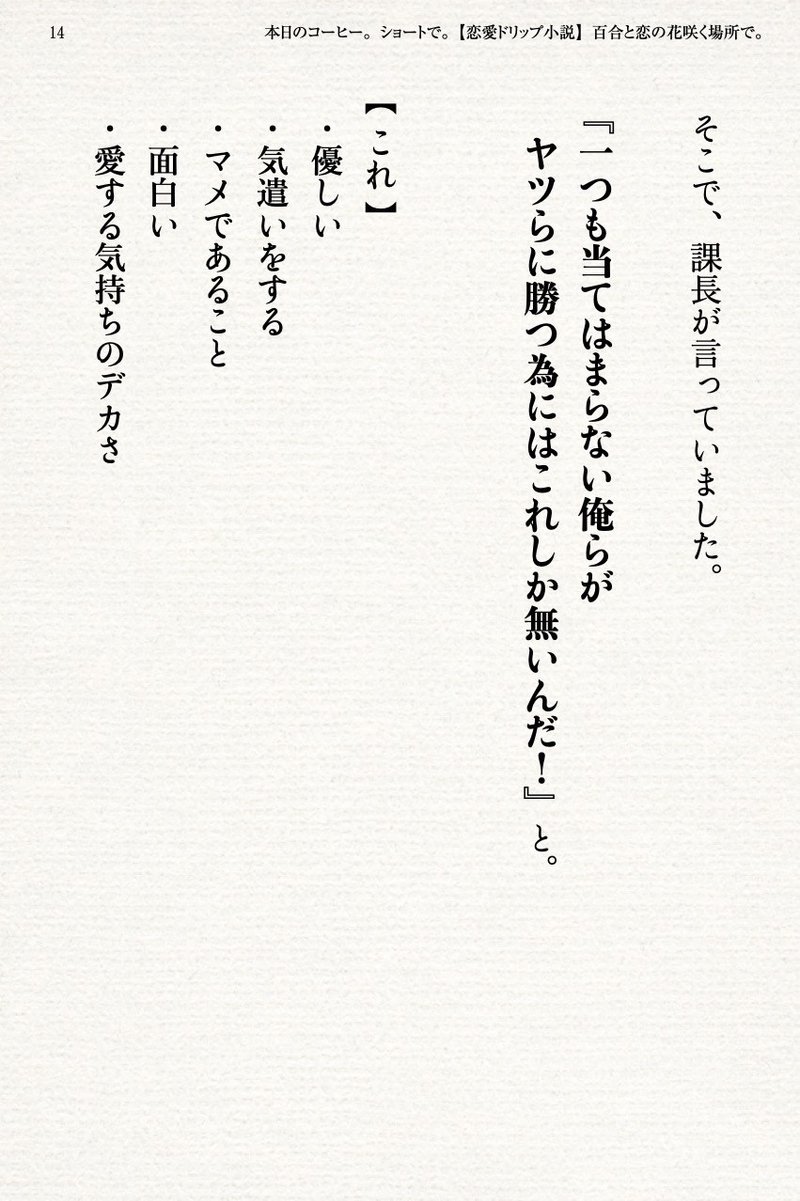 14
本日のコーヒー。ショートで。【恋愛ドリップ小説】 百合と恋の花咲く場所で。
そこで、課長が言っていました。
『一つも当てはまらない俺らが
ヤツらに勝つ為にはこれしか無いんだ！』と。
【これ】
・優しい
・気遣いをする
・マメであること
・面白い
・愛する気持ちのデカさ